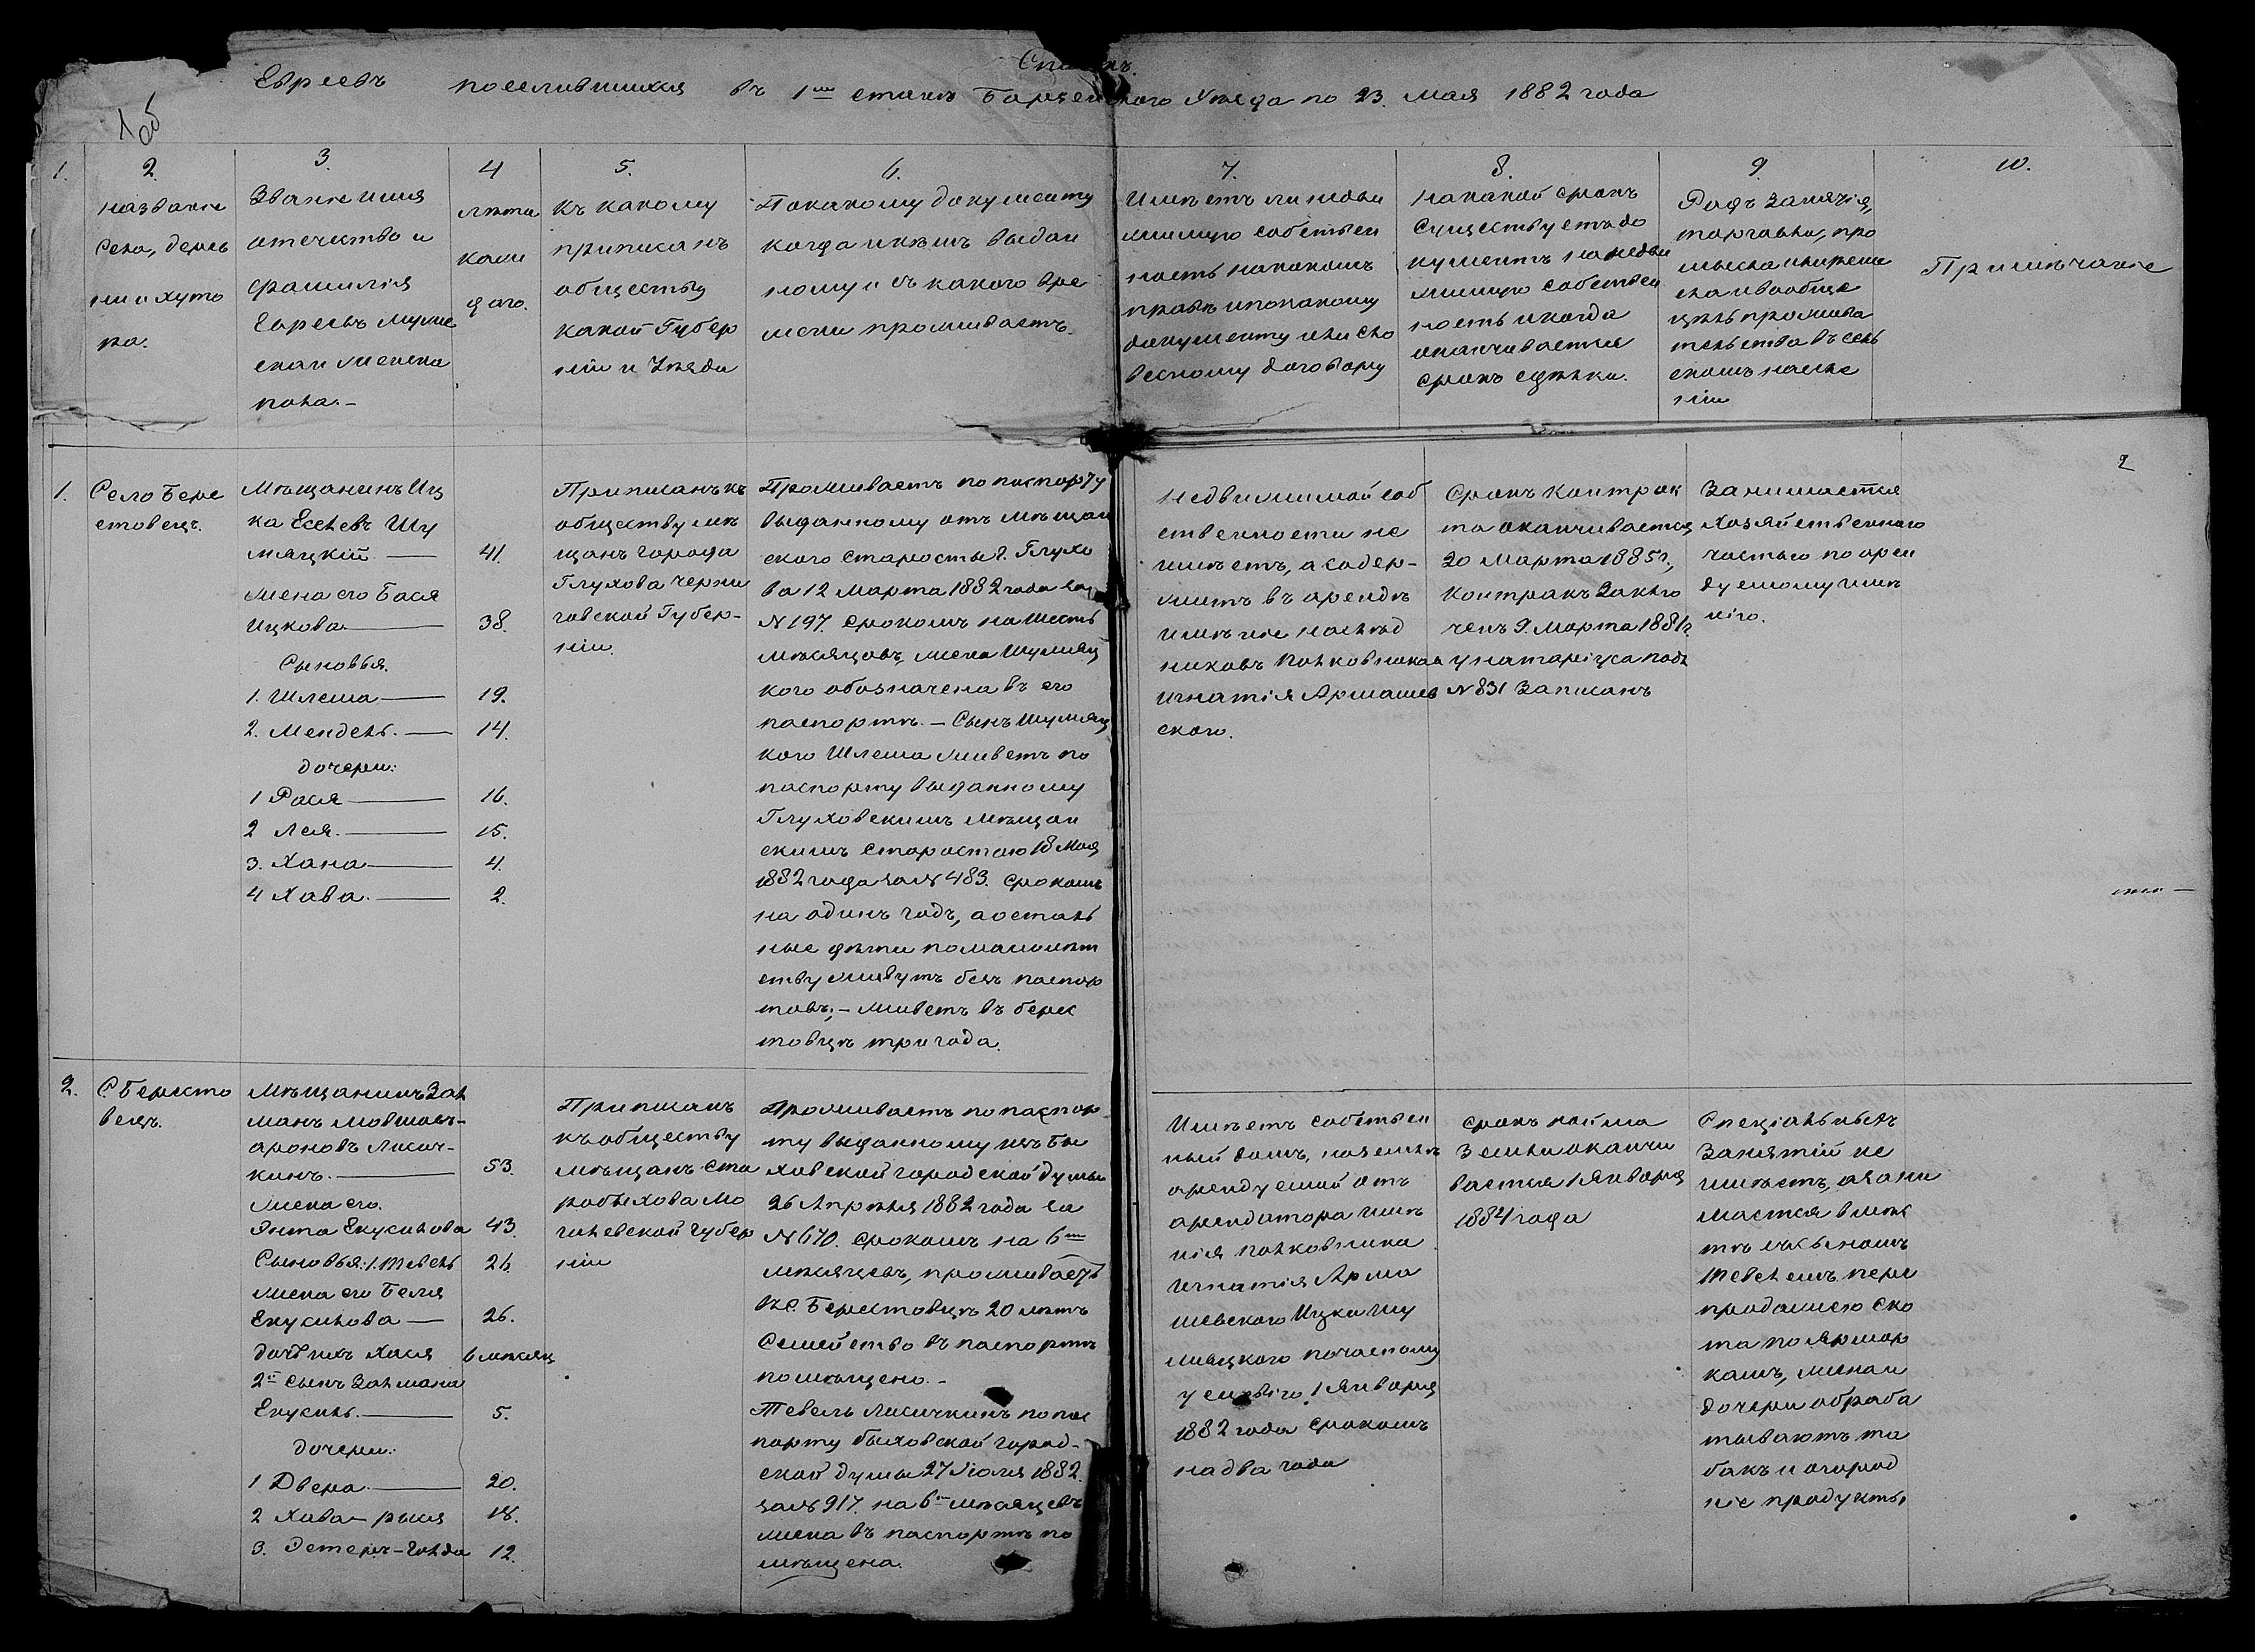 Списокъ
Евреевъ поселившихся въ 1мъ станѣ Борзенского Уѣзда по 23. мая 1882 года
1об
1.
2.
Названіе
Села, дерев
ни и хуто
ра.
3.
Званіе имя
отечество и
фамилія
Евреевъ муже
скаи женска
пола.–
4
лѣта
каж
даго.
5.
Къ какому
приписанъ
обществу
какой Губер
ніи и Уѣзда
6.
Покакому документу
когда икѣмъ выдан
ному и съ какого вре
мени проживаетъ.
7.
Имѣетъ ли недви
жимую собствен
ность накакомъ
правѣ ипокакому
документу или сло
весному договору
8.
Накакой срокъ
существуетъ до
кументъ на недви
жимую собствен
ность икогда
оканчивается
срокъ сдѣлки.
9.
Родъ занятія,
торговли, про
мысла иниреме
сла ивообще
цѣль прожива
тельства въ сель
скомъ населе
ніи
10.
Примѣчаніе
2
1.
Село Бере
стовецъ.
Мѣщанинъ Иц
ка Еселевъ Шу
мяцкій — 41.
Жена его Бася
Ицкова — 38.
Сыновья.
1. Шлема — 19.
2. Мендель. — 14.
дочери:
1 Рася — 16.
2 Лея. — 15.
3. Хана — 4.
4 Хава. — 2.
Приписанъ къ
обществу мѣ
щанъ города
Глухова Черни
говской Губер-
ніи.
Проживаетъ по паспорту
выданному отъ мѣщан
ского старосты г. Глухо
ва 12 марта 1882 года за
№ 197. срокомъ на шесть
мѣсяцовъ, жена Шумяц
кого обозначена въ его
паспортѣ. – Сынъ Шумяц
кого Шлема живетъ по
паспорту выданному
Глуховскимъ мѣщан
скимъ старостою 18 Мая
1882 года за № 483. срокомъ
на одинъ годъ, а осталь
ные дѣти помалолѣт
ству живутъ безъ паспор
товъ; – живетъ въ Берес
товцѣ три года.
Недвижимой соб
ственности не
имѣетъ, а содер-
житъ въ арендѣ
имѣніе наслѣд
никовъ Полковника
Игнатія Армашев
ского.
Срокъ контрак
та оканчивается
20 Марта 1885 г.,
контрактъ заклю
ченъ 9. Марта 1881 г.
у натаріуса подъ
№ 831 записанъ
Занимается
хозяйственною
частью по арен
дуемому имѣ
нію.
2.
С Бересто
вецъ.
Мѣщанинъ Зал
манъ Мовшовъ-
ароновъ Лисич-
кинъ. — 53.
Жена его.
Энта Екусилова 43.
Сыновья: 1. Тевель 26.
жена его Беля
Екусилова — 26.
дочь ихъ Хася 6 мѣсяц
2й сынъ Залмана
Екусиль. — 5.
дочери:
1 Двера. — 20.
2 Хава – рыся 18.
3. Этеръ – Голда 12.
Приписанъ
къ обществу
мѣщанъ Ста
робыхова Мо
гилевской Губер
ніи
Проживаетъ по паспор
ту выданному изъ Бы
ховской городской думы
26 Апрѣля 1882 года за
№ 670. срокомъ на 6ть
мѣсяцевъ, проживаетъ
въ С. Берестовцѣ 20 лѣтъ
Семейство въ паспортѣ
помѣщено. –
Тевель Лисичкинъ по пас
порту Быховской город-
ской думы 27 Іюля 1882.
за № 917. на 6ть мѣсяцевъ
жена въ паспортѣ по
мѣщена.
Имѣетъ собствен
ный домъ, наземлѣ
арендуемой отъ
арендатора имѣ
нія полковника
Игнатія Арма
шевского Ицки Шу
мяцкого по частному
условію 1 Января
1882 года срокомъ
на два года
Срокъ найма
земли оканчи
вается 1 Января
1884 года
Спеціальныхъ
занятій не
имѣетъ, а зани
мается вмѣс
тѣ съ сыномъ
Тевелемъ пере
продажею ско
та по ярмор
камъ, жена и
дочери обраба
тываютъ та
бакъ и огород
ніе продукты